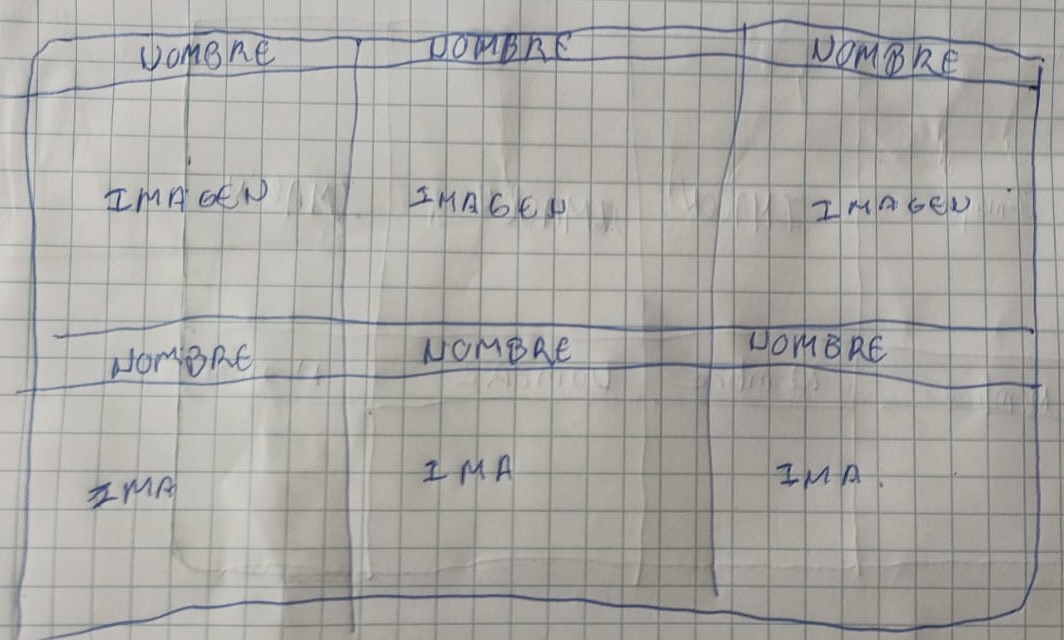 NOMBRE NOMBRE NOMBRE
IMAGEN IMAGEN IMAGEN
NOMBRE NOMBRE NOMBRE
IMA IMA IMA.